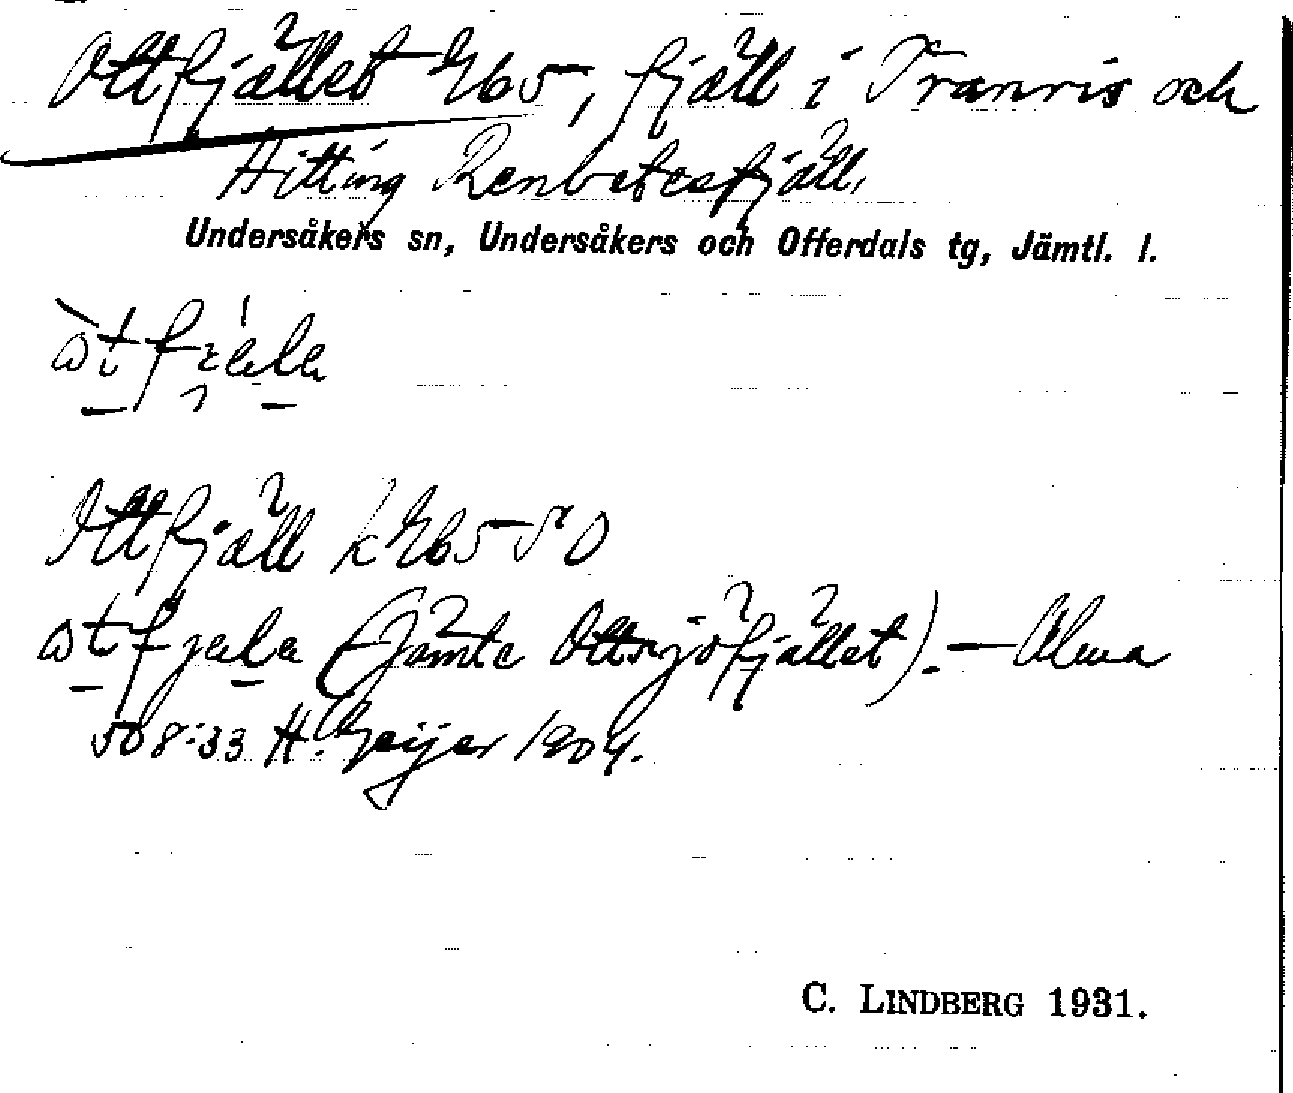 Ottfjället Eb5, fjäll i Tranris och
Hitting Renbetesfjäll,
Undersåkers sn, Undersåkers och Offerdals tg, Jämtl. l.
Ottfjäll k Eb5 SO
(jämte Ottsjöfjället). — Alma
508:33 H. Geijer 1904.
C. LINDBERG 1931.